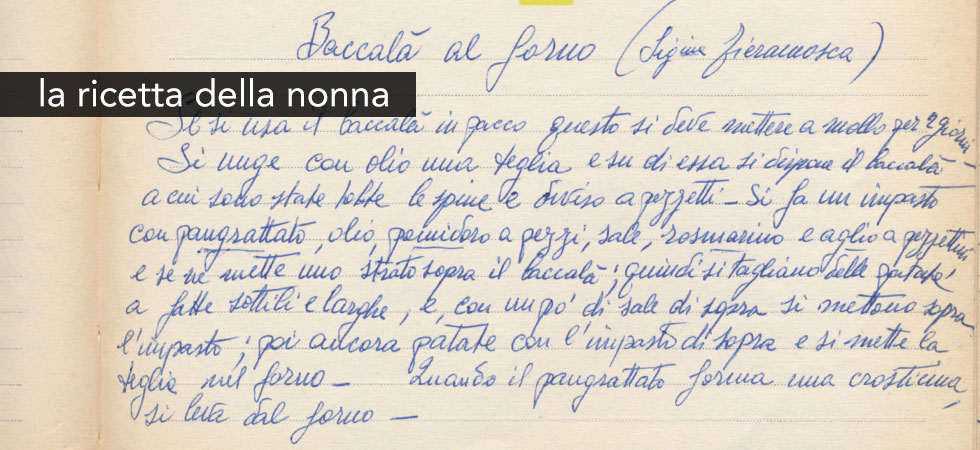 Baccalà al forno (Sig.na Fieramosca)
la ricetta della nonna
Se si usa il baccalà in pacco questo si deve mettere a mollo per 2 giorni -
Si unge con olio una teglia e su di essa si dispone il baccalà
a cui sono state tolte le spine e diviso a pezzetti - Si fa un impasto
con pangrattato, olio, pomidoro a pezzi, sale, rosmarino e aglio a pezzettini
e se ne mette uno strato sopra il baccalà; quindi si tagliano delle patate
a fette sottili e larghe, e, con un po' di sale di sopra si mettono sopra
l'impasto; poi ancora patate con l'impasto di sopra e si mette la
teglia nel forno - Quando il pangrattato forma una crosticina,
si leva dal forno -